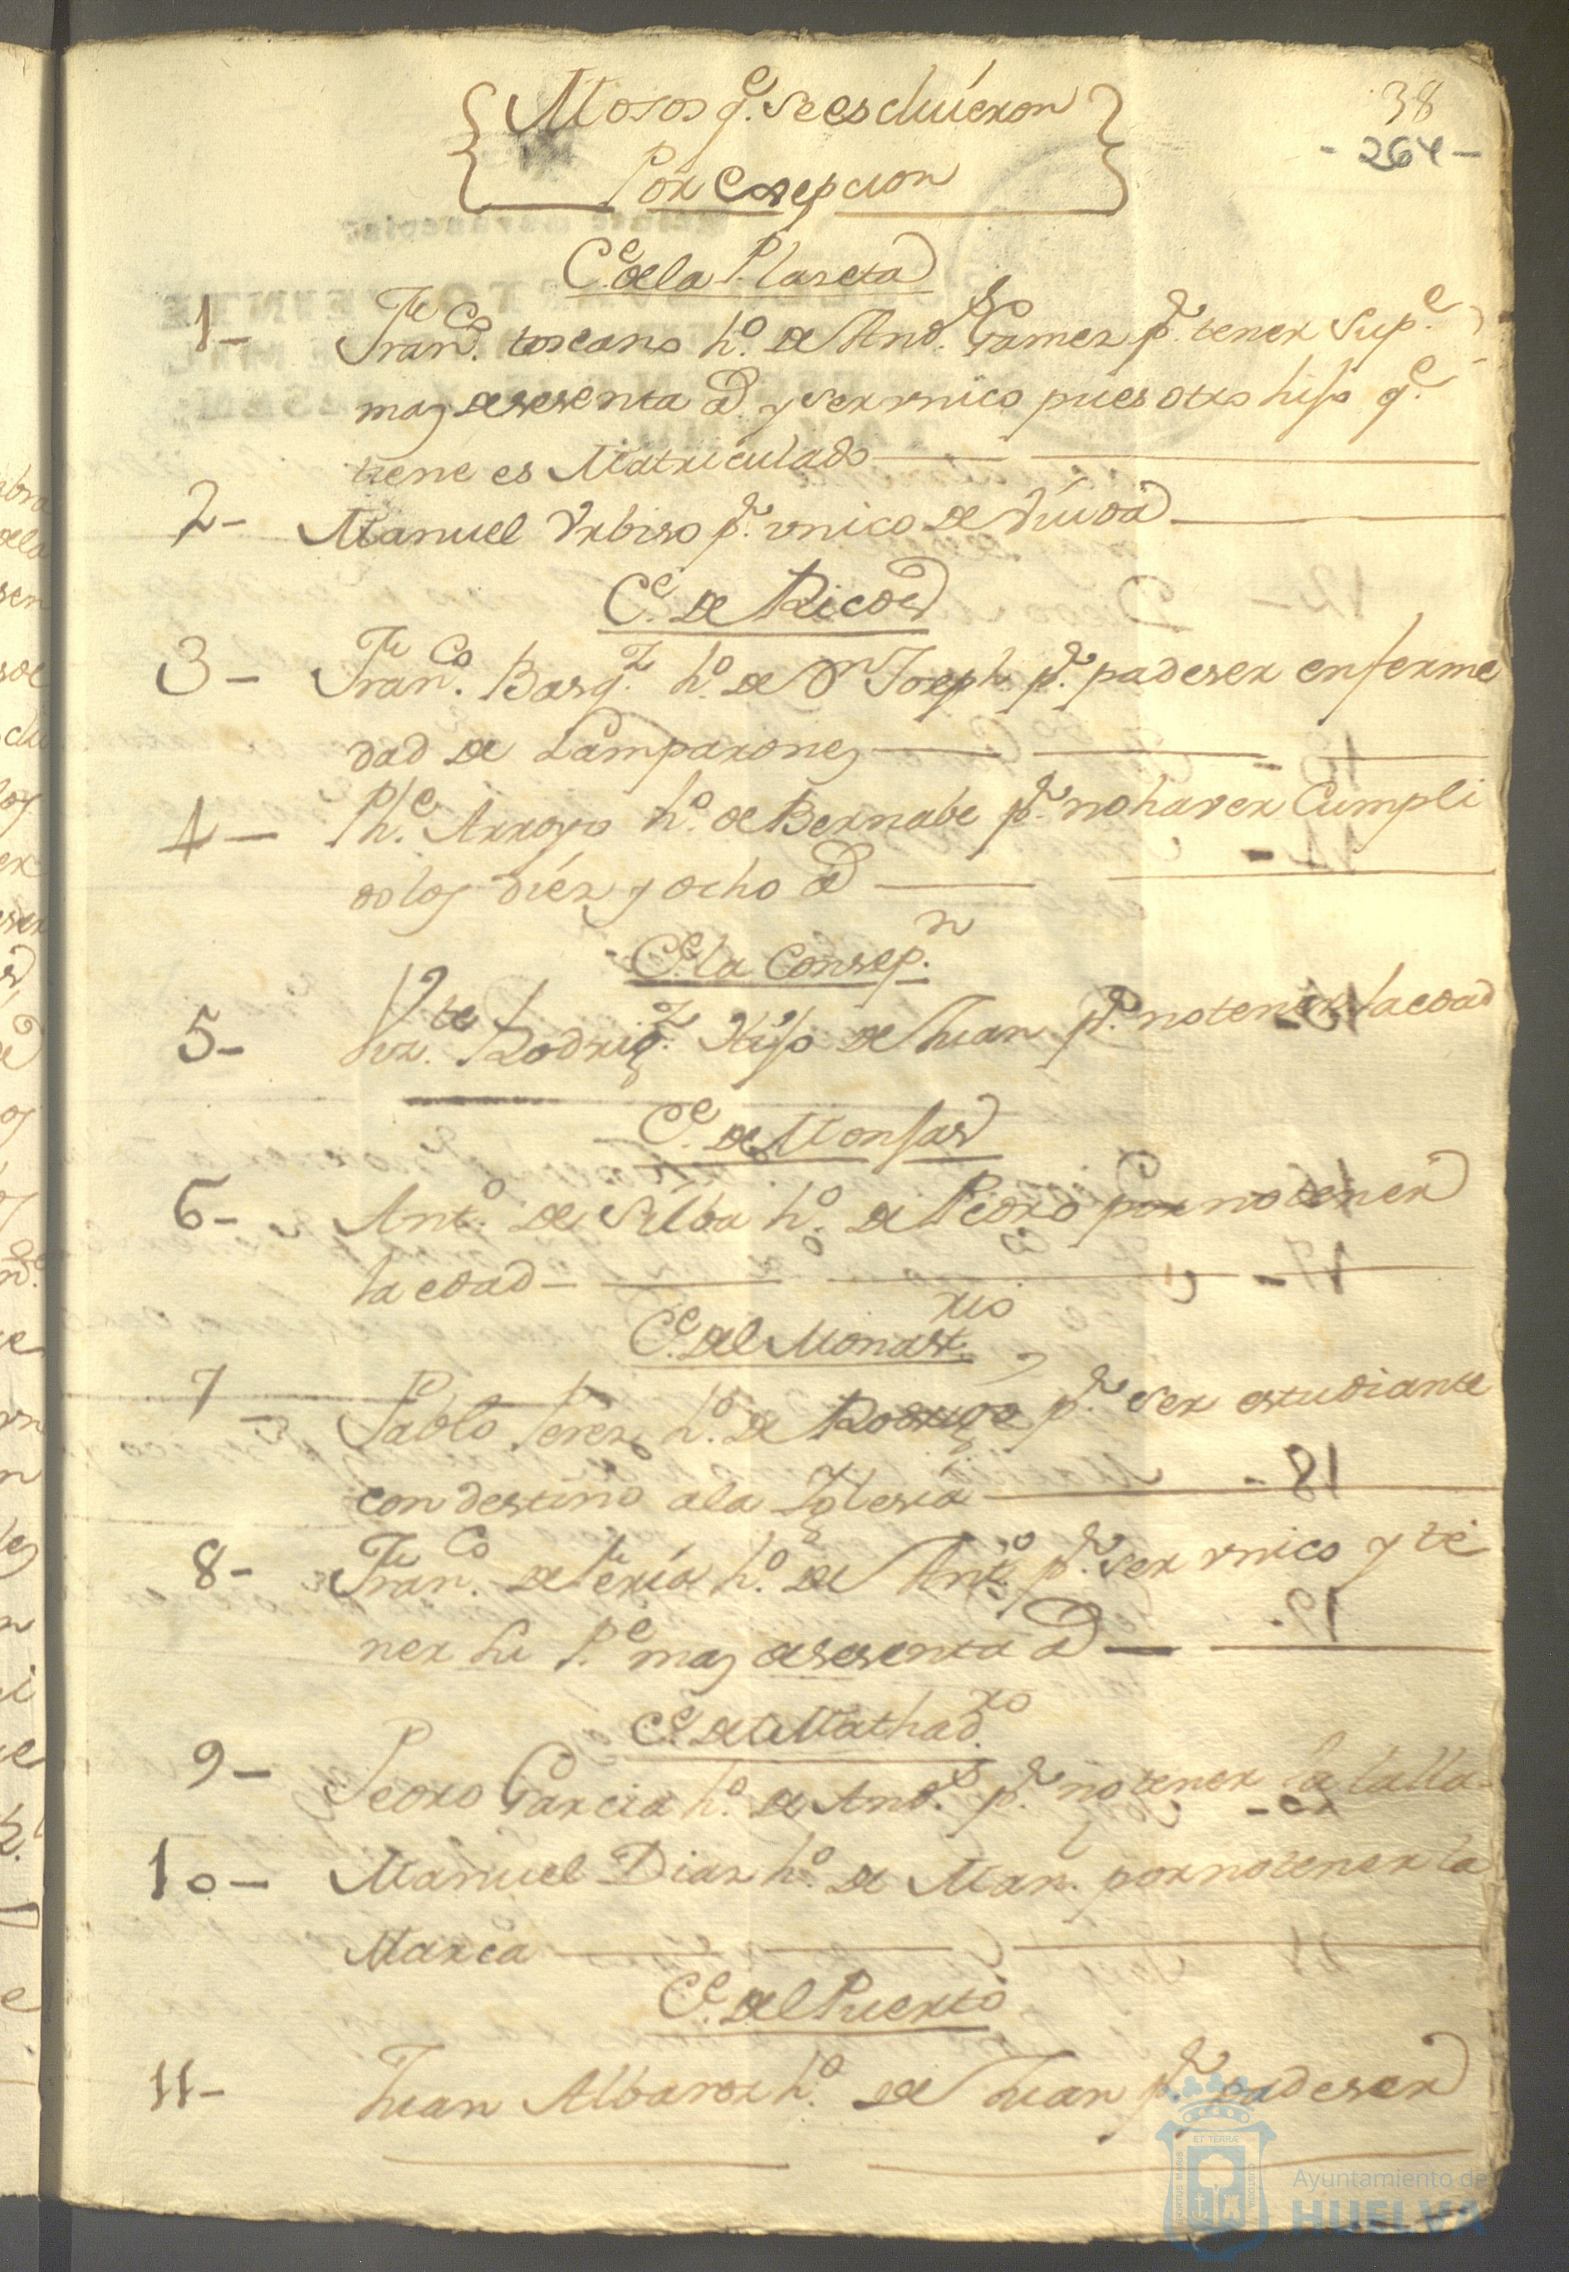 38
- 264 -
Mosos q.e se escluieron
Por Esepcion
C.e de la Plaseta
1- Fran.co toscano h.o de And.s Gomez p.r tener su p.e
mas de sesenta a.s y ser unico pues otro hijo q.e
tiene es Matriculado
2- Manuel Urbiso p.r unico de Viuda
C.e de Ricos
3- Fran.co Basq.z h.o de D.n Joseph p.r padeser enferme
dad de Lamparones
4- Ph.e Arroyo h.o de Bernabe p.r no haver Cumpli
do los diez y ocho a.s
C.e la Consep.n
5- Vz.te Rodrig.z Hijo de Juan p.r no tener la edad
C.e de Monjas
6- Ant.o de Silba h.o de Pedro por no tener
la edad
C.e del Monast.rio
7- Pablo Perez h.o de Rodrigo p.r ser estudiante
con destino a la Iglesia
8- Fran.co de h.o de Ant.o p.r ser unico y te
ner su P.e mas de sesenta a.s
C.e de Mathad.ro
9- Pedro Garcia h.o de And.s p.r no tener la talla
10- Manuel Diaz h.o de Man.l por no tener la
Marca
C.e del Puerto
11- Juan Albarez h.o de Juan p.r padeser
Ayuntamiento de
HUELVA